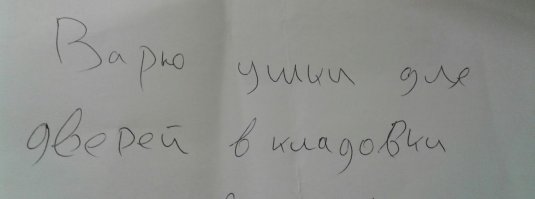 Варю ушки для
дверей в кладовки